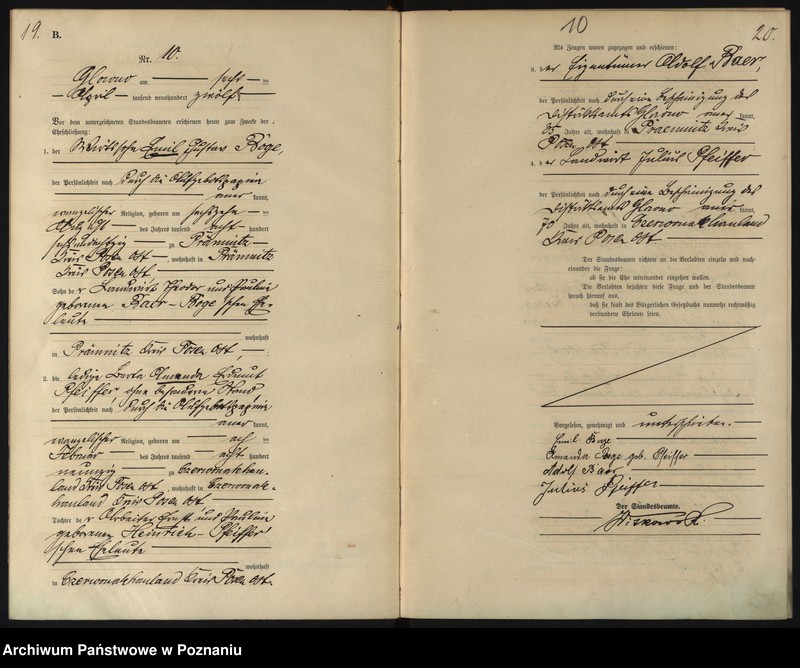 19.
B.
Nr. 10.
Glowno am sechs ten
April tausend neunhundert zwölf
Vor dem unterzeichneten Standesbeamten erschienen heute zum Zwecke der
Eheschließung:
1. der Emil Gustav Böge,
der Persönlichkeit nach durch die Aufgebotspapiere
kannt,
evangelischer Religion, geboren am sechszehn ten
des Jahres tausend acht hundert
sechsundachtzig zu Prämnitz
Kreis Posen Ost, wohnhaft in Prämnitz
Kreis Posen Ost
Sohn der Landwirt Theodor und Pauline
geborene Baer - Böge'schen Ehe-
leute
wohnhaft
in Prämnitz Kreis Posen Ost;
2. die ledige Berta Amanda
Pfeiffer, ohne besonderen Stand,
der Persönlichkeit nach durch die Aufgebotspapiere
kannt,
evangelischer Religion, geboren am ten
Februar des Jahres tausend acht hundert
neunzig zu Czerwonakhau-
land Kreis Posen Ost, wohnhaft in Czerwonak-
hauland Kreis Posen Ost
Tochter der Arbeiter Ernst und Pauline
geborenen Heinrich - Pfeiffer
'schen Eheleute
wohnhaft
in Czerwonakhauland Kreis Posen Ost.
10
20.
Als Zeugen waren zugezogen und erschienen:
3. der Eigentümer Adolf Baer,
der Persönlichkeit nach durch eine Bescheinigung des
Distriktsamts Glowno kannt,
Jahre alt, wohnhaft in Kreis
Posen Ost
4. der Landwirt Julius Pfeiffer
der Persönlichkeit nach durch eine Bescheinigung des
Distriktsamts Glowno kannt,
70 Jahre alt, wohnhaft in Czerwonakhauland
Kreis Posen Ost
Der Standesbeamte richtete an die Verlobten einzeln und nach-
einander die Frage:
ob sie die Ehe miteinander eingehen wollen.
Die Verlobten bejahten diese Frage und der Standesbeamte
sprach hierauf aus,
daß sie kraft des Bürgerlichen Gesetzbuchs nunmehr rechtmäßig
verbundene Eheleute seien.
Vorgelesen, genehmigt und unterschrieben.
Emil Böge
Amanda Böge geb. Pfeiffer
Adolf Baer
Julius Pfeiffer
Der Standesbeamte.
Archiwum Państwowe w Poznaniu